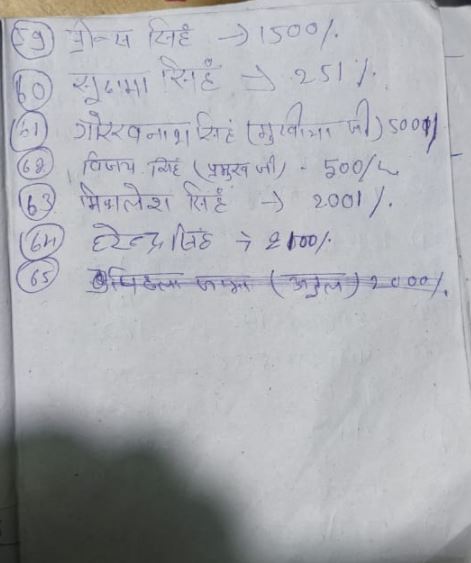 59 प्रीन्स सिहं → 1500/.
60 सूदामा सिहं → 251/.
61 गोरखनाथ सिहं (मुखीया जी) 5000/
62 विजय सिंह (प्रमुख जी) - 500/-
63 मिथलेश सिहं → 2001/.
64 हरेन्द्र सिंह → 2100/.
65 (अतुल) 2000/.